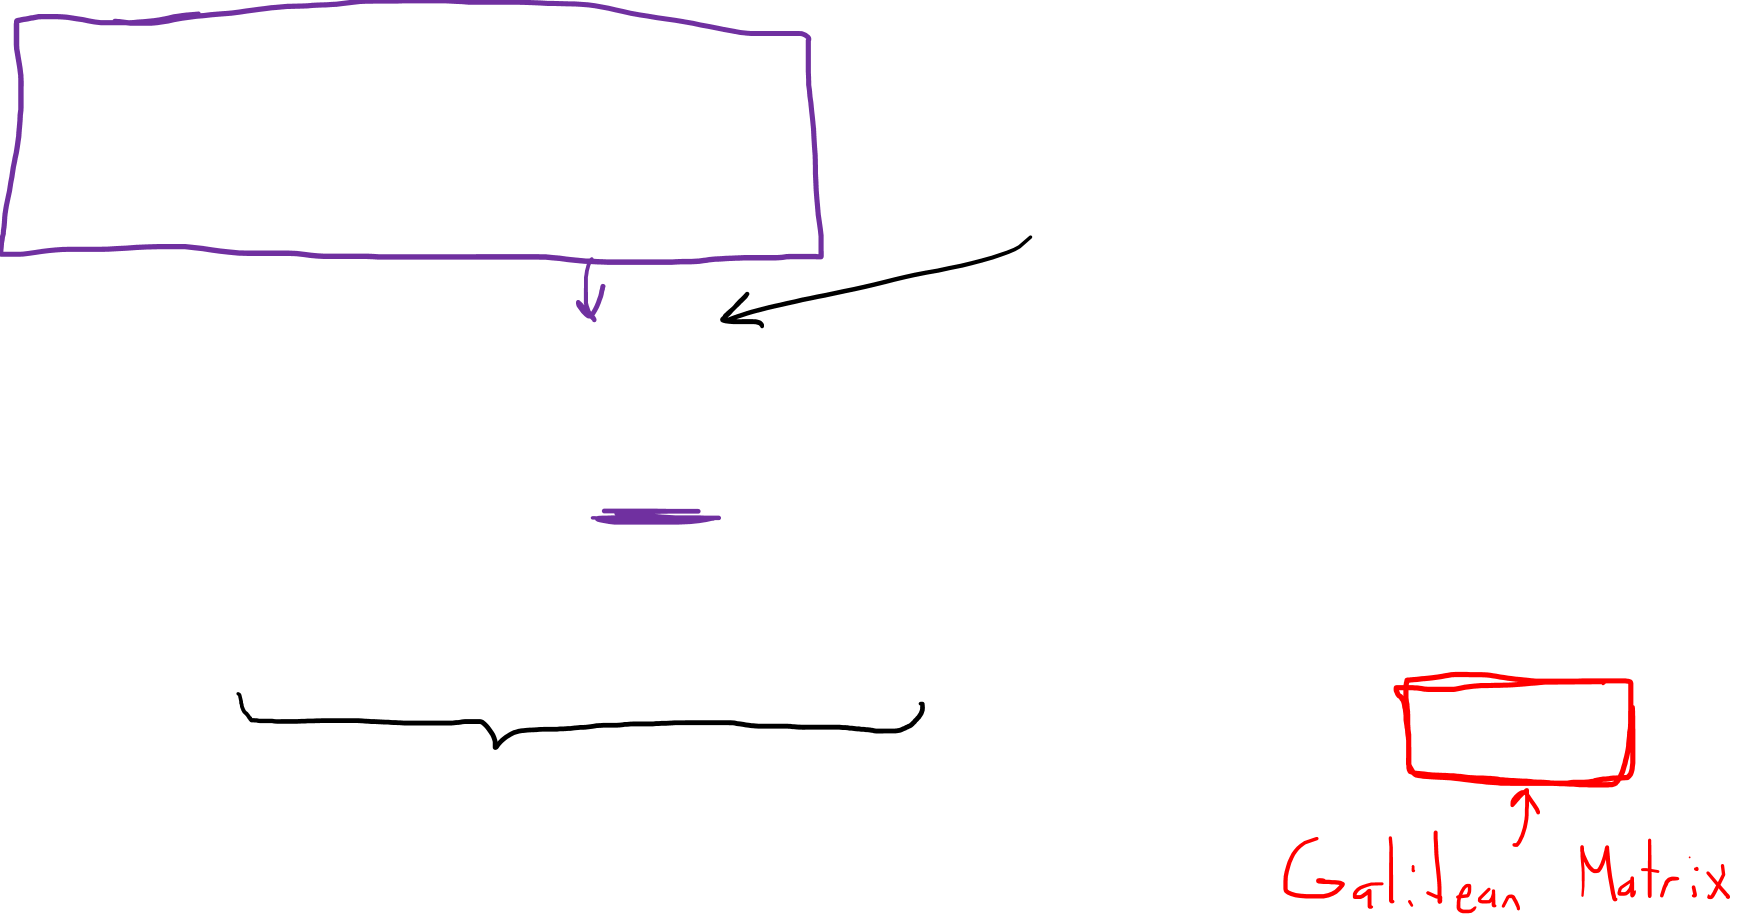 Galilean Matrix